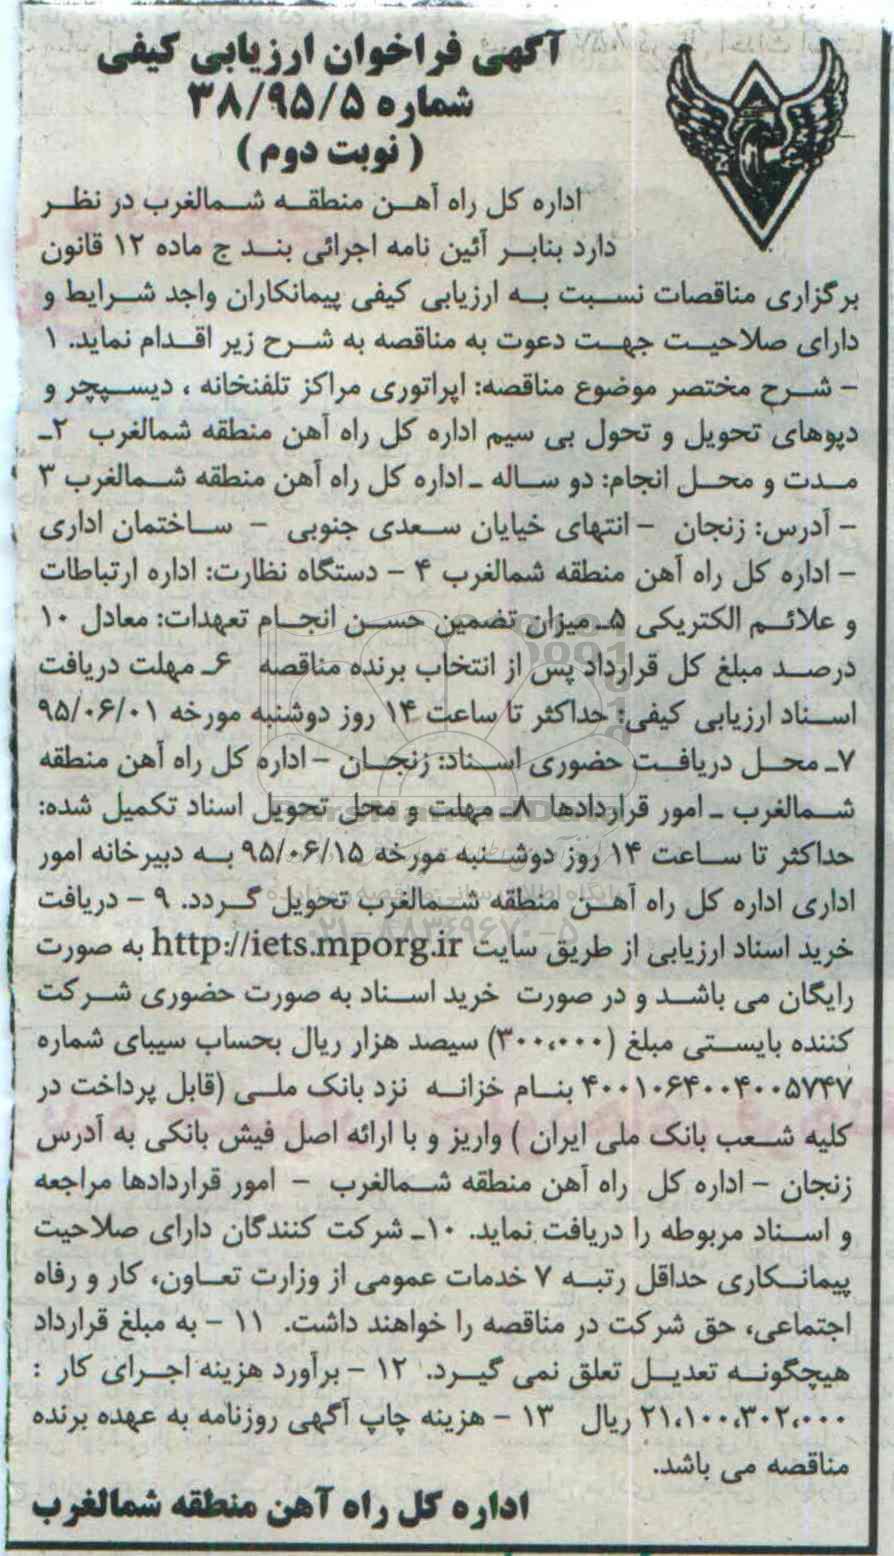 آگهی فراخوان ارزیابی کیفی
شماره ۳۸/۹۵/۵
( نوبت دوم )
اداره کل راه آهن منطقه شمالغرب در نظر
دارد بنابر آئین نامه اجرائی بند ج ماده ۱۲ قانون
برگزاری مناقصات نسبت به ارزیابی کیفی پیمانکاران واجد شرایط و
دارای صلاحیت جهت دعوت به مناقصه به شرح زیر اقدام نماید. ۱
- شرح مختصر موضوع مناقصه: اپراتوری مراکز تلفنخانه ، دیسپچر و
دپوهای تحویل و تحول بی سیم اداره کل راه آهن منطقه شمالغرب ۲ـ
مدت و محل انجام: دو ساله ـ اداره کل راه آهن منطقه شمالغرب ۳
- آدرس: زنجان - انتهای خیابان سعدی جنوبی - ساختمان اداری
- اداره کل راه آهن منطقه شمالغرب ۴ - دستگاه نظارت: اداره ارتباطات
و علائم الکتریکی ۵ـ میزان تضمین حسن انجام تعهدات: معادل ۱۰
درصد مبلغ کل قرارداد پس از انتخاب برنده مناقصه ۶ـ مهلت دریافت
اسناد ارزیابی کیفی: حداکثر تا ساعت ۱۴ روز دوشنبه مورخه ۹۵/۰۶/۰۱
۷ـ محل دریافت حضوری اسناد: زنجان - اداره کل راه آهن منطقه
شمالغرب ـ امور قراردادها ۸ـ مهلت و محل تحویل اسناد تکمیل شده:
حداکثر تا ساعت ۱۴ روز دوشنبه مورخه ۹۵/۰۶/۱۵ به دبیرخانه امور
اداری اداره کل راه آهن منطقه شمالغرب تحویل گردد. ۹ - دریافت
خرید اسناد ارزیابی از طریق سایت http://iets.mporg.ir به صورت
رایگان می باشد و در صورت خرید اسناد به صورت حضوری شرکت
کننده بایستی مبلغ (۳۰۰،۰۰۰) سیصد هزار ریال بحساب سیبای شماره
۴۰۰۱۰۶۴۰۰۴۰۰۵۷۴۷ بنام خزانه نزد بانک ملی (قابل پرداخت در
کلیه شعب بانک ملی ایران ) واریز و با ارائه اصل فیش بانکی به آدرس
زنجان - اداره کل راه آهن منطقه شمالغرب - امور قراردادها مراجعه
و اسناد مربوطه را دریافت نماید. ۱۰ـ شرکت کنندگان دارای صلاحیت
پیمانکاری حداقل رتبه ۷ خدمات عمومی از وزارت تعاون، کار و رفاه
اجتماعی، حق شرکت در مناقصه را خواهند داشت. ۱۱ - به مبلغ قرارداد
هیچگونه تعدیل تعلق نمی گیرد. ۱۲ - برآورد هزینه اجرای کار :
۲۱،۱۰۰،۳۰۲،۰۰۰ ریال ۱۳ - هزینه چاپ آگهی روزنامه به عهده برنده
مناقصه می باشد.
اداره کل راه آهن منطقه شمالغرب
۰۲۱-۸۸۳۴۹۶۷۰-۵